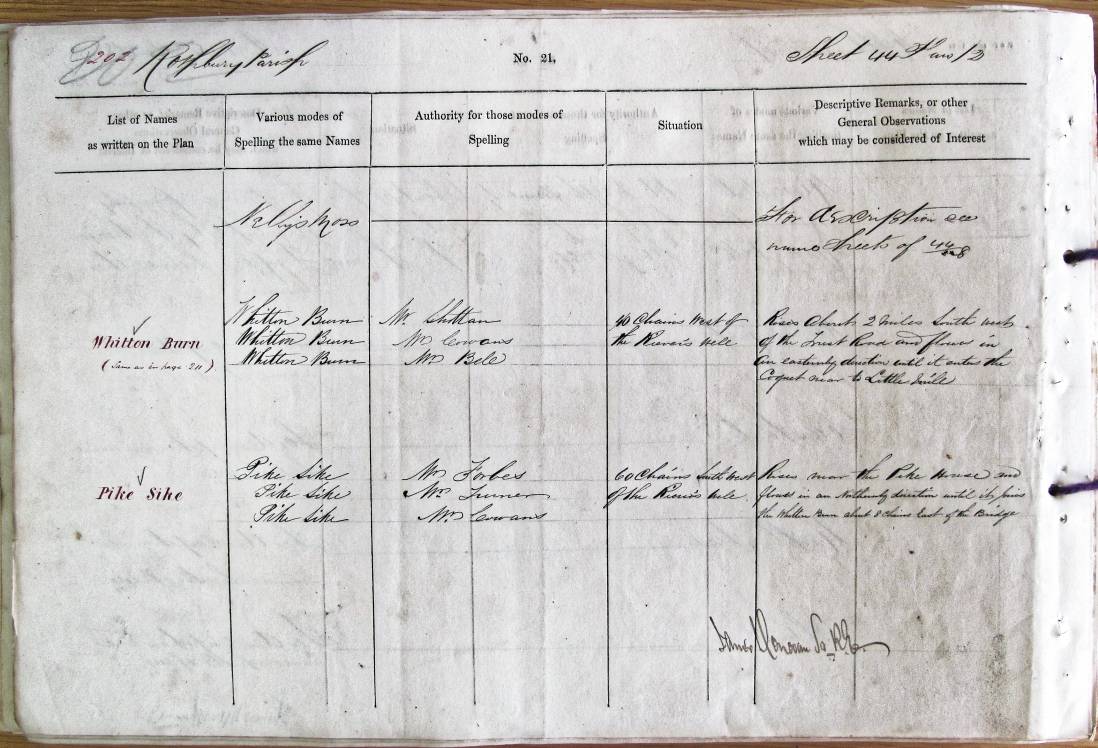 202 Rothbury Parish
No. 21,
Sheet 44 Plan 12
List of Names
as written on the Plan
Various modes of
Spelling the same Names
Authority for those modes of
Spelling
Situation
Descriptive Remarks, or other
General Observations
which may be considered of Interest
Nellys Moss
For description see
name sheets of 44/8
Whitton Burn
(Same as in page 211)
Whitton Burn
Whitton Burn
Whitton Burn
Mr. Shottan
Mr Cowans
Mr Bele
40 Chains West of
the Reiver's Well
Rises about 2 miles South west
of the Trust Road and flows in
an easterly direction until it enters the
Coquet near to Little Mill
Pike Sike
Pike Sike
Pike Sike
Pike Sike
Mr Forbes
Mr Turner
Mr Cowans
60 Chains South West
of the Reiver's Well
Rises near the Pike House and
flows in an Northerly direction until its joins
the Whitton Burn about 8 Chains East of the Bridge
James Donovan R.E.